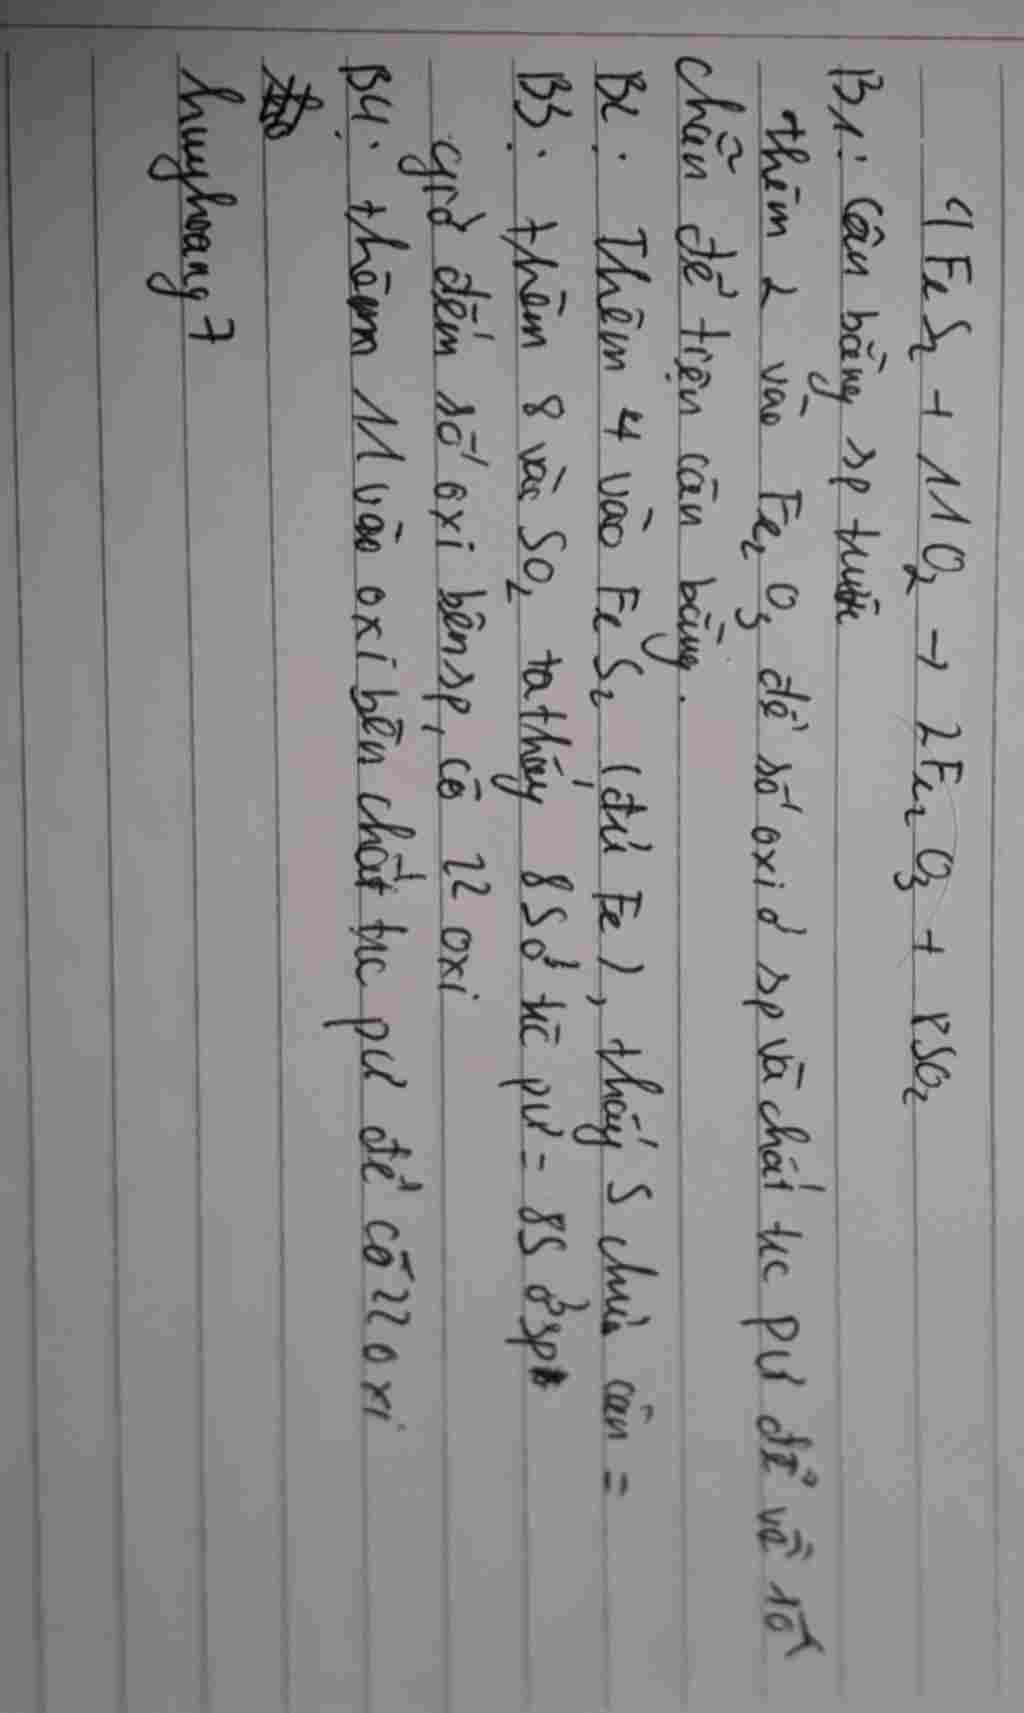 4FeS₂ + 11O₂ → 2Fe₂O₃ + 8SO₂
B1: cân bằng sp trước
thêm 2 vào Fe₂O₃ để số oxi ở sp và chất tc pư để về số
chẵn để tiện cân bằng.
B2: Thêm 4 vào FeS₂ (đủ Fe), thấy S chưa cân =
B3: thêm 8 vào SO₂ ta thấy 8S ở tc pư = 8S ở sp
giờ đếm số oxi bên sp, có 22 oxi
B4: thêm 11 vào oxi bên chất tc pư để có 22 oxi
huyhoang7